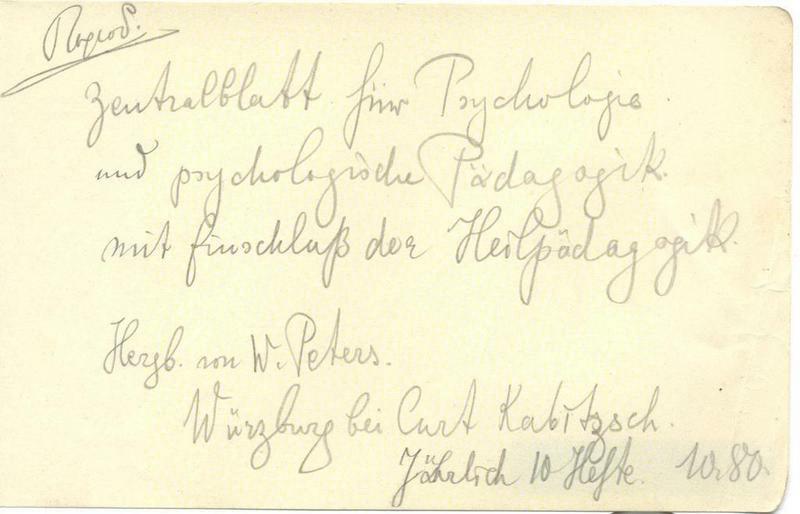 Period.
Zentralblatt für Psychologie
und psychologische Pädagogik.
mit Einschluß der Heilpädagogik.
Hergb. von W. Peters.
Würzburg bei Curt Kabitzsch.
Jährlich 10 Hefte. 10.80.